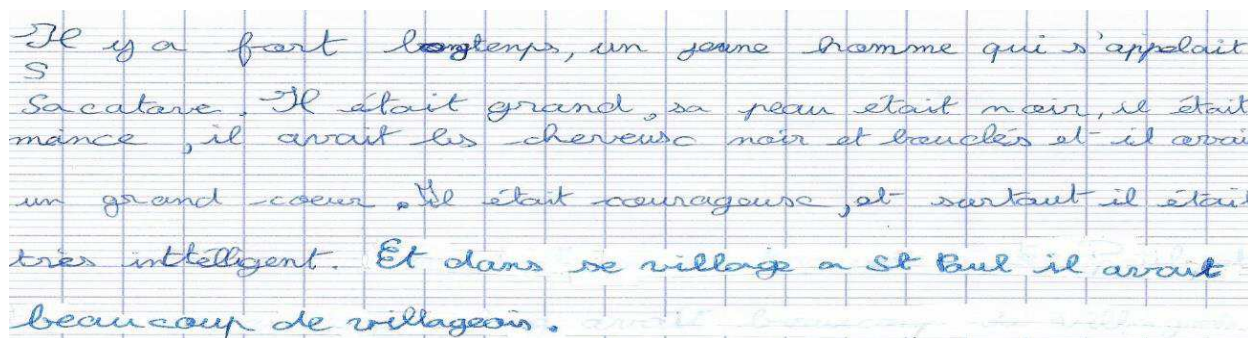 Il y a fort longtemps, un jeune homme qui s'appelait
S
Sacatave. Il était grand, sa peau était noir, il était
mince, il avait les cheveux noir et bouclés et il avai
un grand coeur. Il était courageux, et surtout il était
très inttelligent. Et dans se village a St Paul il avait
beaucoup de villageois.